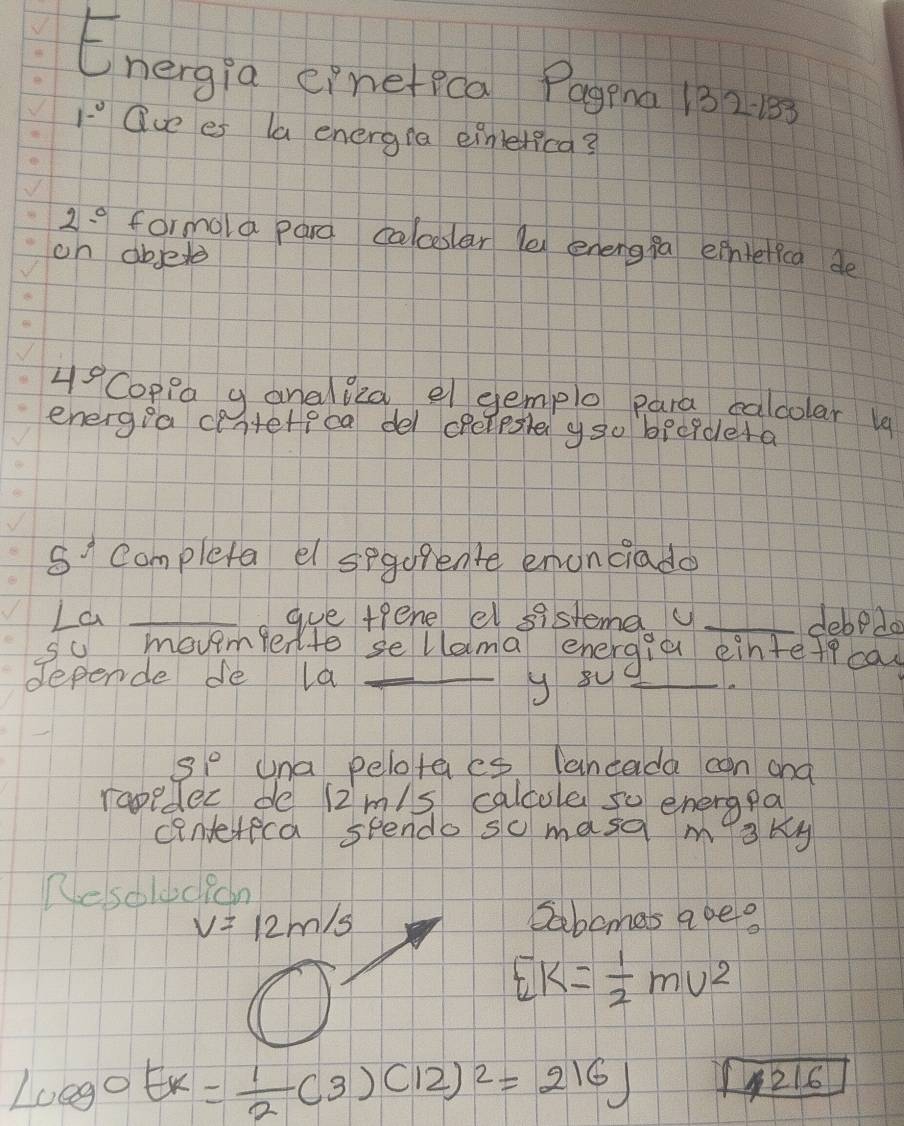 Energia cinetica Pagina 132-133
1-° Que es la energia cintetica?
2-° formola para calcular la energia cintetica de
un objeto
4° Copia y analiza el ejemplo para calcolar la
energia cintetica del y su bicicleta
5° completa el siguiente enunciado
La ____ que tiene el sistema y ____ debido
su movimiento se llama energia cintetica y
depende de la ____ y su ____.
si° una pelota es lancada con una
rapidec de 12 m/s calcula su energia
cintetica siendo su masa m 3 Kg
Resolucion
V = 12 m/s
Sabemos que:
EK = 1/2 mv2
Luego Ek = 1/2 (3) (12) 2 = 216 J
216